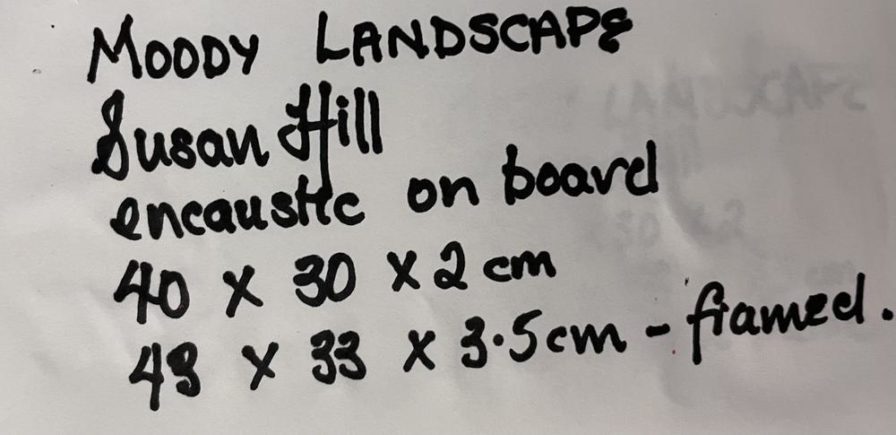 MOODY LANDSCAPE
Susan Hill
encaustic on board
40 x 30 x 2 cm
43 x 33 x 3.5 cm - framed.